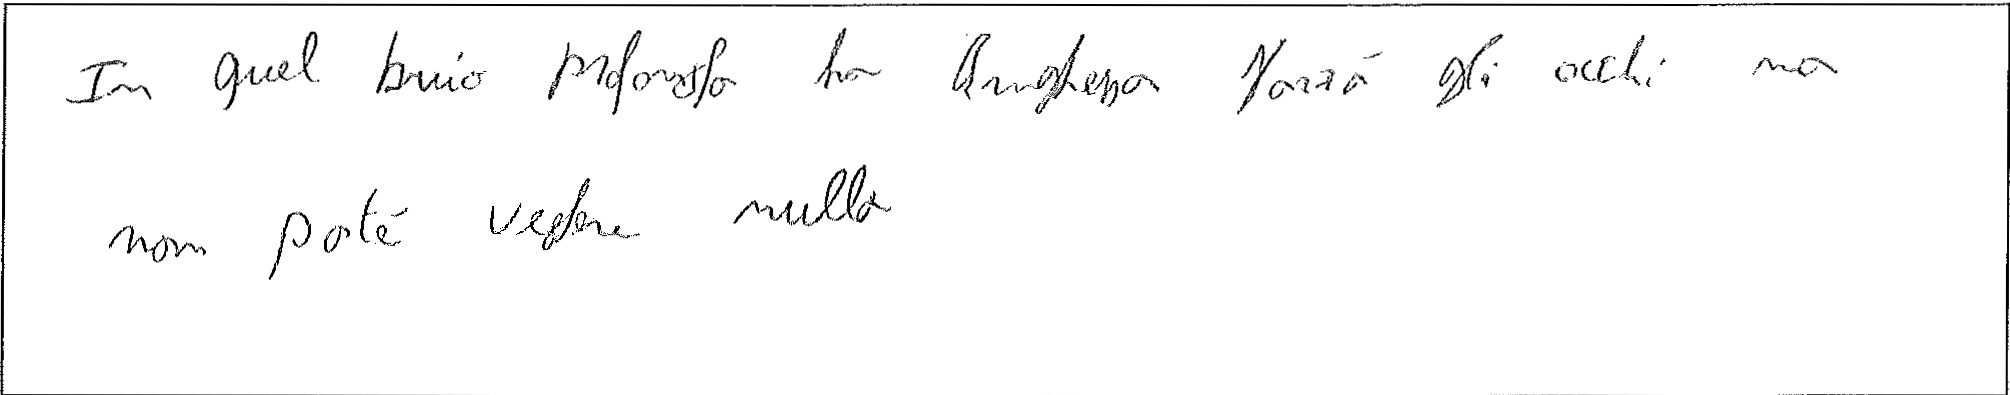 In quel buio profonda ha lunghezza forzá gli occhi ma
non poté vedere nulla